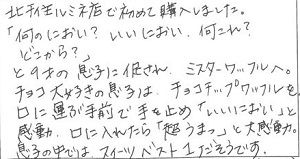 北千住ルミネ店で初めて購入しました。
「何のにおい？いいにおい、何これ？
どこから？」
と9才の息子に促され、ミスターワッフルへ。
チョコ大好きの息子は、チョコチップワッフルを
口に運ぶ手前で手を止め「いいにおい」と
感動、口に入れたら「超うまっ」と大感動。
息子の中では、スイーツベスト1だそうです。